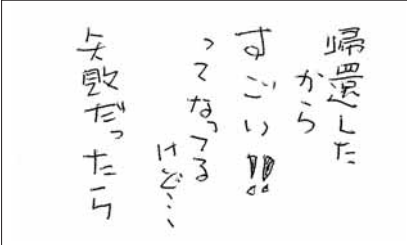 帰還した
から
すごい!!
ってなってる
けど…、
失敗だったら